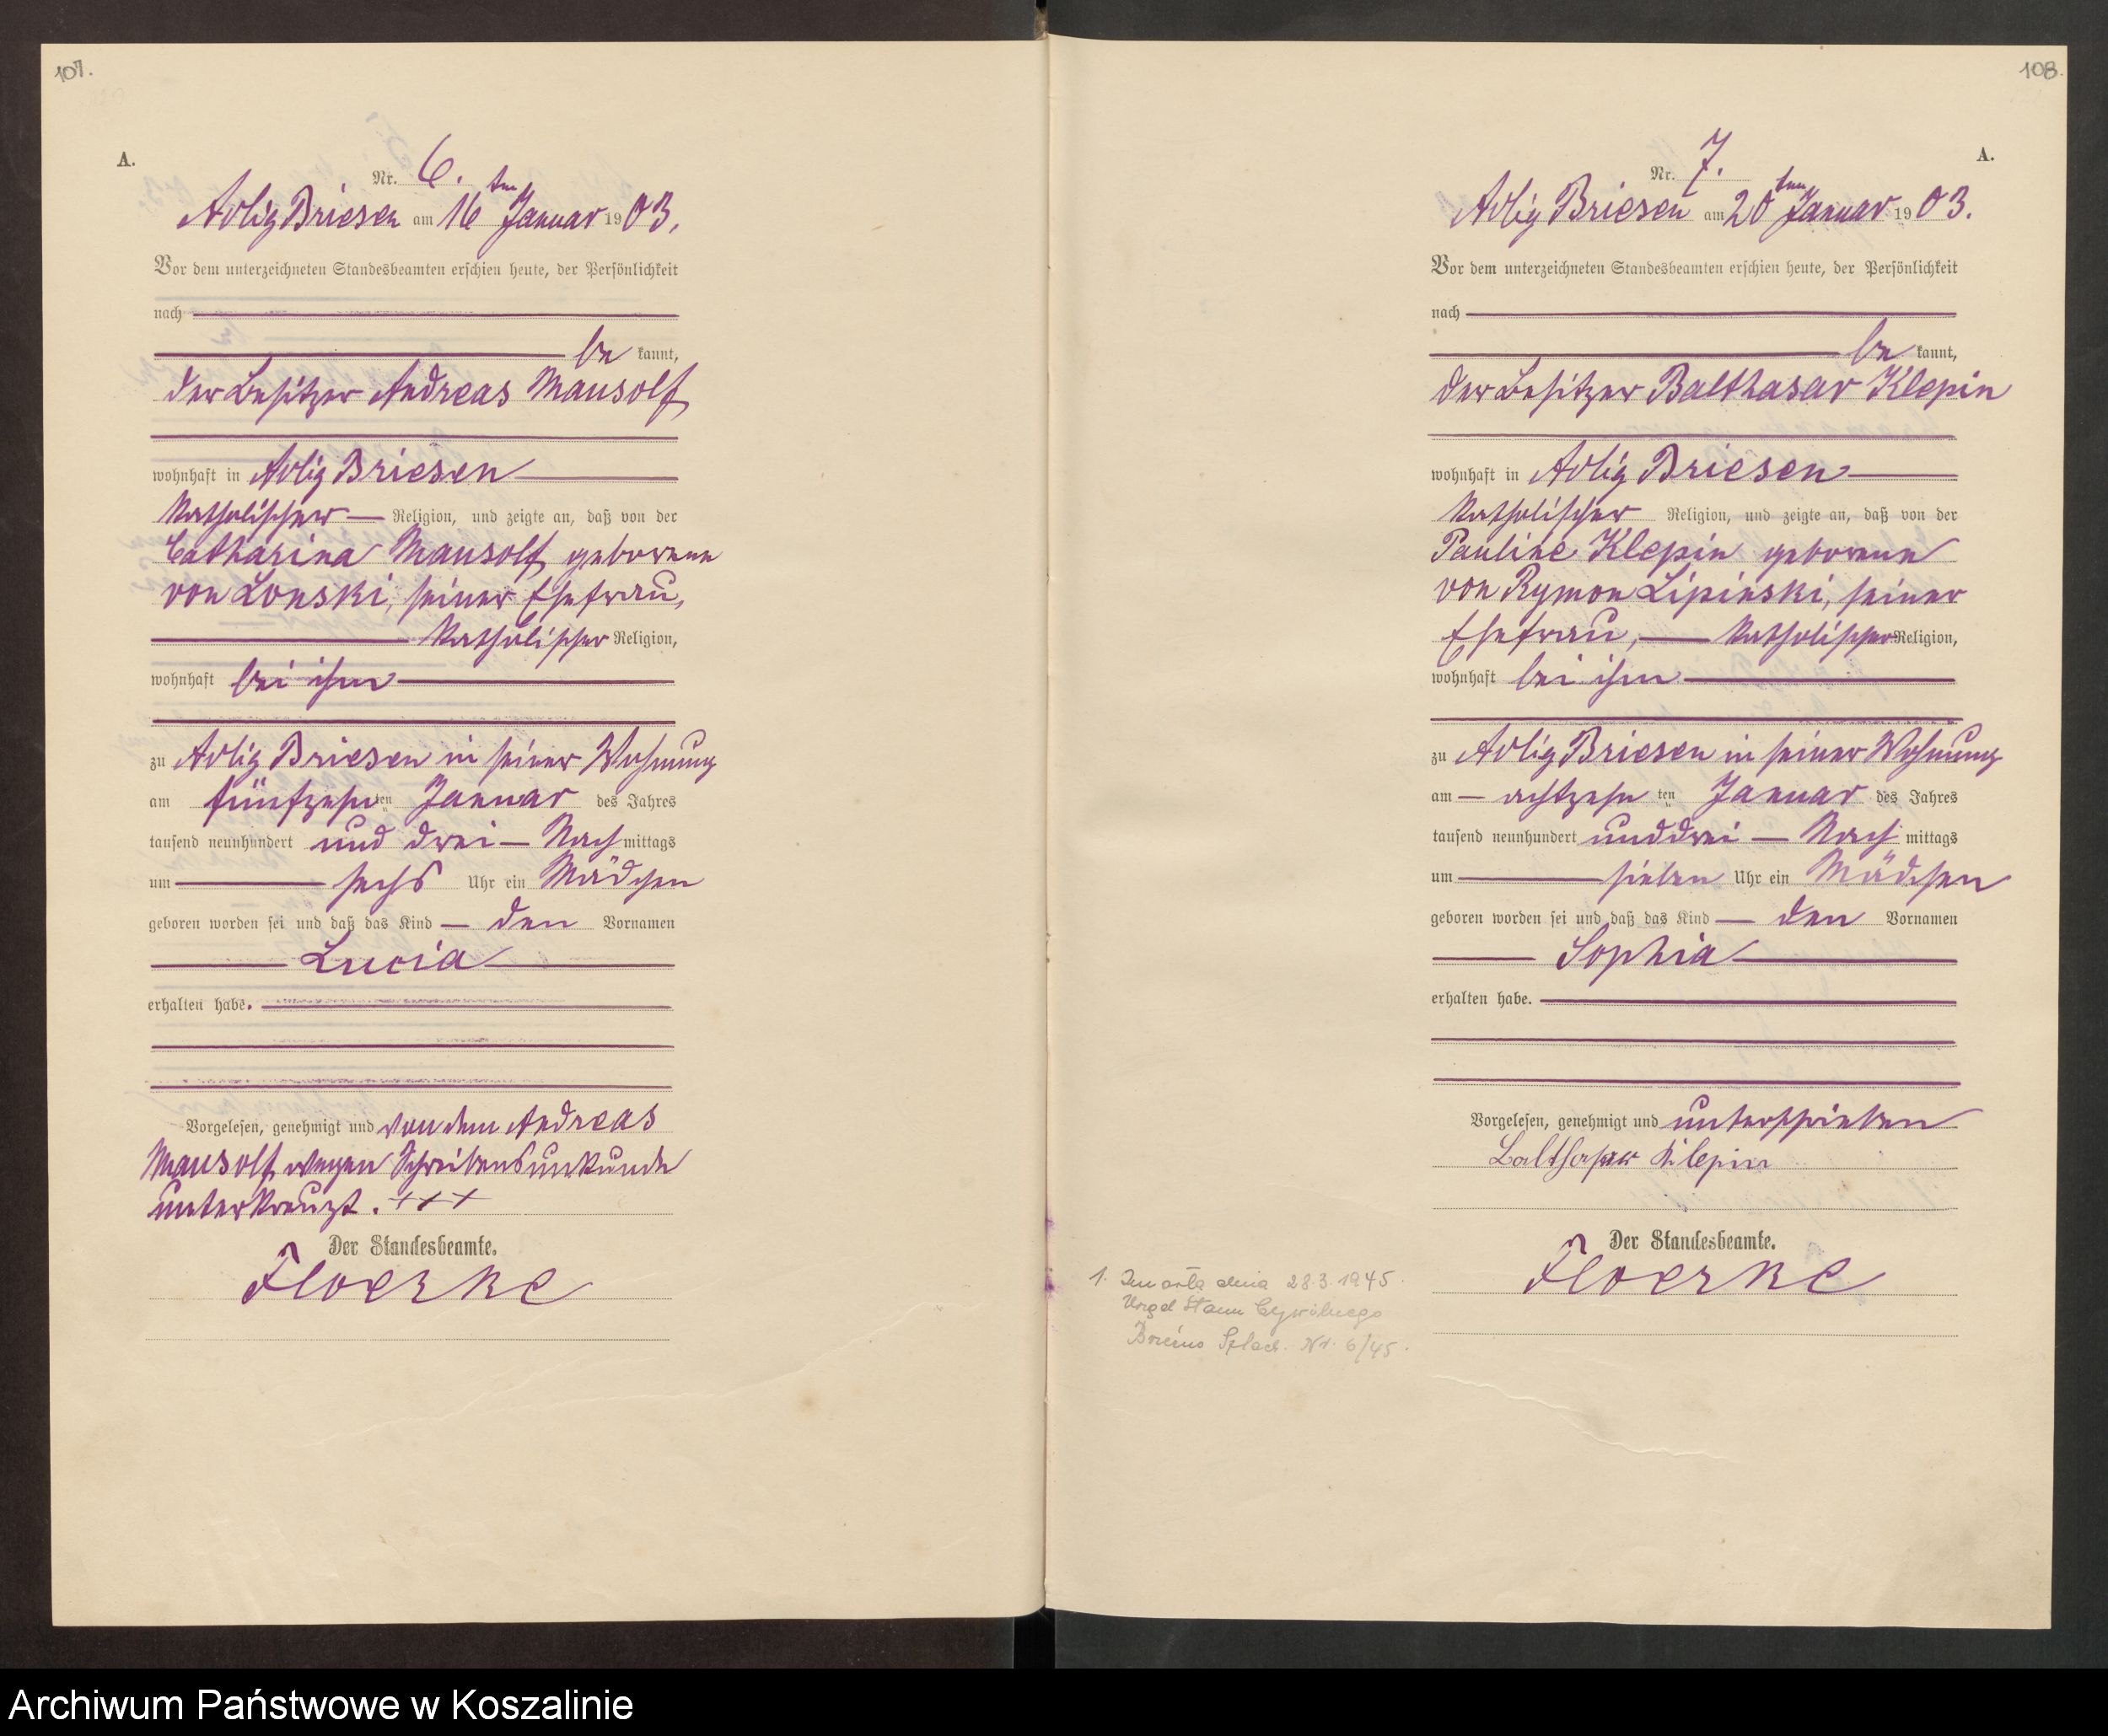 107.
A.
Nr. 6.
Adlig Briesen am 16ten Januar 1903.
Vor dem unterzeichneten Standesbeamten erschien heute, der Persönlichkeit
nach
be kannt,
der Besitzer Andreas Mausolf
wohnhaft in Adlig Briesen
katholischer Religion, und zeigte an, daß von der
Catharina Mausolf geborene
von Lonski, seiner Ehefrau,
katholischer Religion,
wohnhaft bei ihm
zu Adlig Briesen in seiner Wohnung
am fünfzehnten Januar des Jahres
tausend neunhundert und drei Nachmittags
um sechs Uhr ein Mädchen
geboren worden sei und daß das Kind den Vornamen
Lucia
erhalten habe.
Vorgelesen, genehmigt und von dem Andreas
Mausolf wegen Schreibensunkunde
unterkreuzt. +++
Der Standesbeamte.
Floerke
108.
A.
Nr. 7.
Adlig Briesen am 20ten Januar 1903.
Vor dem unterzeichneten Standesbeamten erschien heute, der Persönlichkeit
nach
be kannt,
der Besitzer Balthasar Klepin
wohnhaft in Adlig Briesen
katholischer Religion, und zeigte an, daß von der
Pauline Klepin geborene
von Rymon Lipinski, seiner
Ehefrau, katholischer Religion,
wohnhaft bei ihm
zu Adlig Briesen in seiner Wohnung
am achtzehnten Januar des Jahres
tausend neunhundert und drei Nachmittags
um sieben Uhr ein Mädchen
geboren worden sei und daß das Kind den Vornamen
Sophia
erhalten habe.
Vorgelesen, genehmigt und unterschrieben
Balthasar Klepin
Der Standesbeamte.
Floerke
1. Zmarła dnia 28.3.1945.
Urząd Stanu Cywilnego
Brzeźno Szlach. Nr. 6/45.
Archiwum Państwowe w Koszalinie